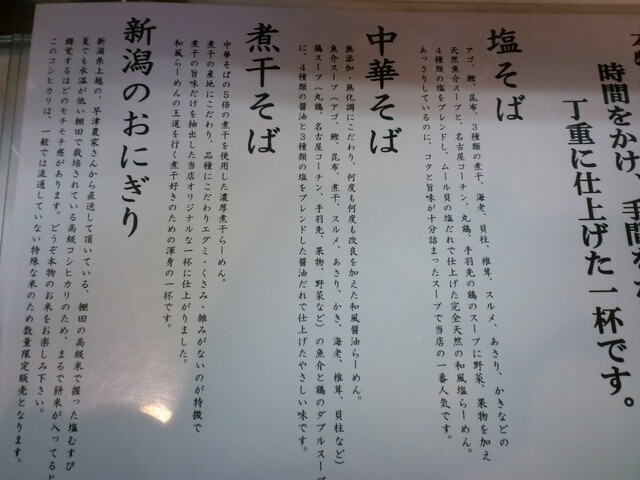 時間をかけ、手間を
丁重に仕上げた一杯です。
塩そば
アゴ、鰹、昆布、3種類の煮干、海老、貝柱、椎茸、スルメ、あさり、かきなどの
天然魚介スープと、名古屋コーチン、丸鶏、手羽先の鶏のスープに野菜、果物を加え
4種類の塩をブレンドし、ムール貝の塩だれで仕上げた完全天然の和風塩らーめん。
あっさりしているのに、コクと旨味が十分詰まったスープで当店の一番人気です。
中華そば
無添加・無化調にこだわり、何度も何度も改良を加えた和風醤油らーめん。
魚介スープ(アゴ、鰹、昆布、煮干、スルメ、あさり、かき、海老、椎茸、貝柱など)
鶏スープ(丸鶏、名古屋コーチン、手羽先、果物、野菜など)の魚介と鶏のダブルスープ
に、4種類の醤油と3種類の塩をブレンドした醤油だれで仕上げたやさしい味です。
煮干そば
中華そばの5倍の煮干を使用した濃厚煮干らーめん。
煮干の産地にこだわり、品種にこだわりエグミ・くさみ・雑みがないのが特徴で
煮干の旨味だけを抽出した当店オリジナルな一杯に仕上がりました。
和風らーめんの王道を行く煮干好きのための渾身の一杯です。
新潟のおにぎり
新潟県上越の、早津農家さんから直送して頂いている、棚田の高級米で握った塩むすび
夏でも水温が低い棚田で栽培されている高級コシヒカリのため、まるで餅米が入ってると
錯覚するほどのモチモチ感があります。どうぞ本物のお米をお楽しみ下さい。
このコシヒカリは、一般では流通していない特殊な米のため数量限定販売となります。